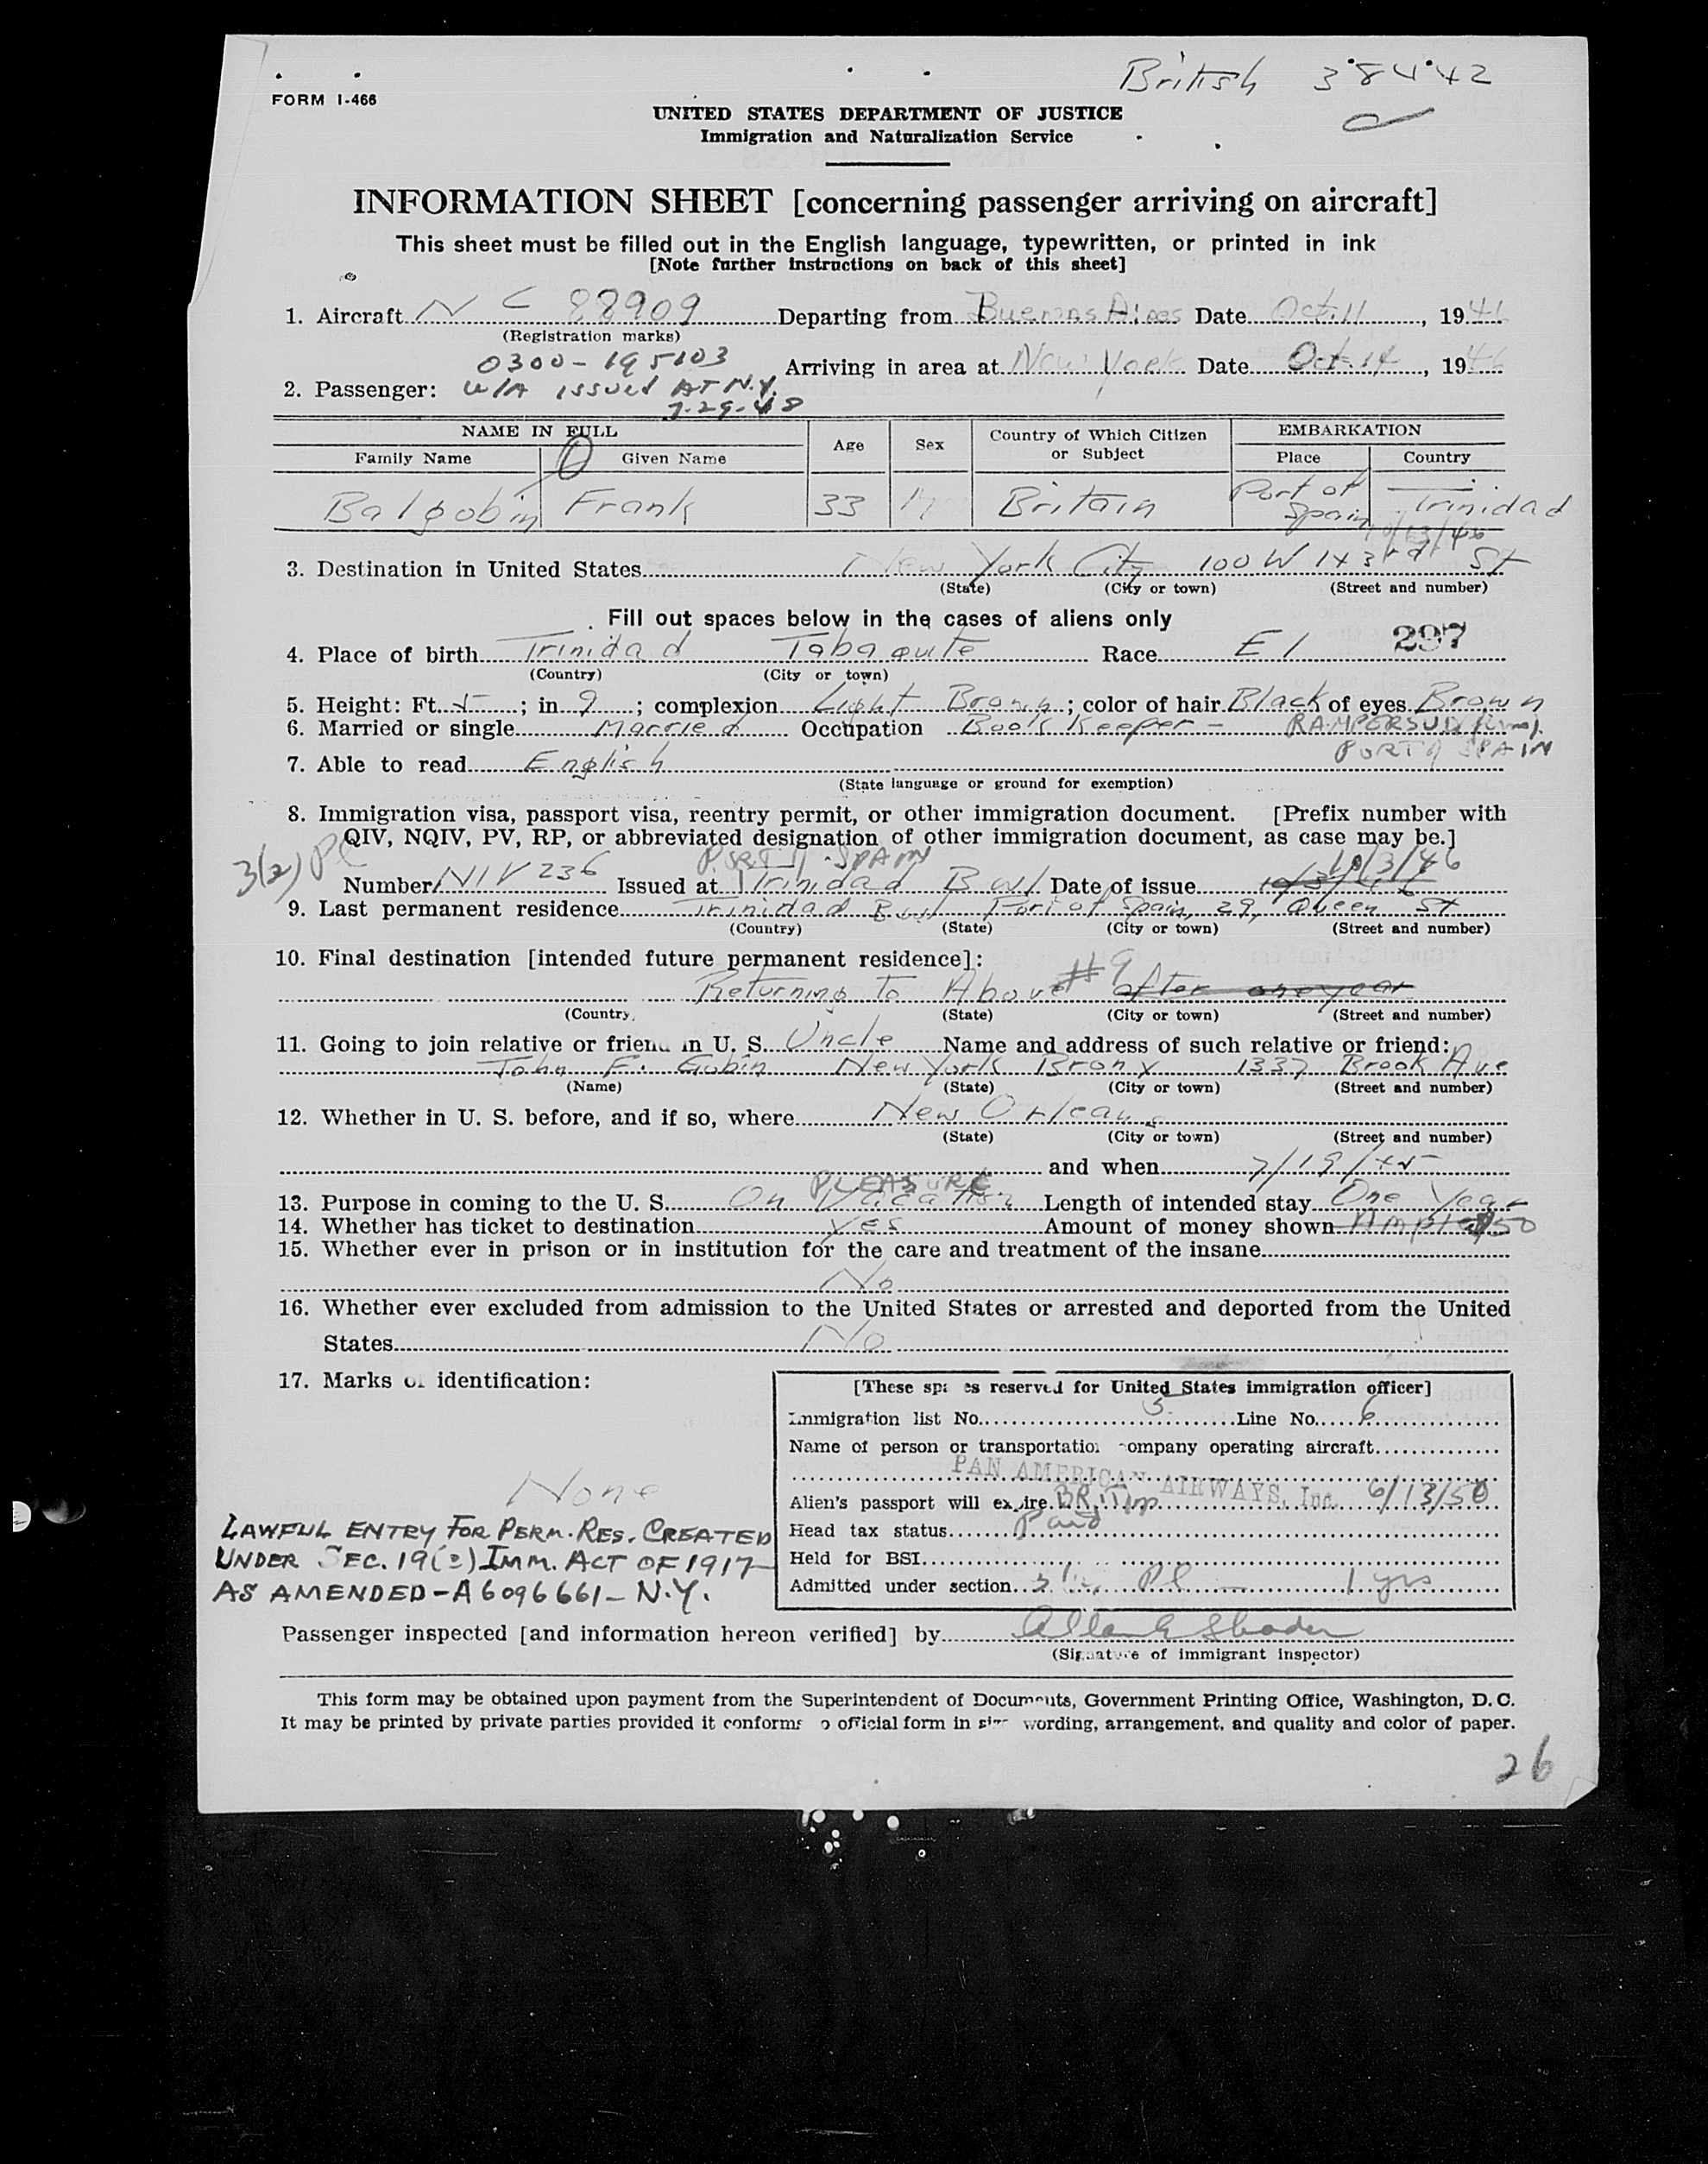 British 38442
FORM I-466
UNITED STATES DEPARTMENT OF JUSTICE
Immigration and Naturalization Service
INFORMATION SHEET [concerning passenger arriving on aircraft]
This sheet must be filled out in the English language, typewritten, or printed in ink
[Note further instructions on back of this sheet]
1. Aircraft NC 88909 Departing from Buenos Aires Date Oct. 11, 1946
(Registration marks)
0300-195103
Arriving in area at New York Date Oct. 14, 1946
2. Passenger: W/A issued AT N.Y.
7-29-48
NAME IN FULL Age Sex Country of Which Citizen or Subject EMBARKATION
Family Name Given Name Place Country
Balgobin Frank 33 M Britain Port of Spain Trinidad
3. Destination in United States New York City 100 W 143rd St
(State) (City or town) (Street and number)
Fill out spaces below in the cases of aliens only
4. Place of birth Trinidad Tabaquite Race E I 297
(Country) (City or town)
5. Height: Ft. 5; in 9; complexion Light Brown; color of hair Black of eyes Brown
6. Married or single Married Occupation Book Keeper - RAMPERSUD (firm).
PORT of SPAIN
7. Able to read English
(State language or ground for exemption)
8. Immigration visa, passport visa, reentry permit, or other immigration document. [Prefix number with
QIV, NQIV, PV, RP, or abbreviated designation of other immigration document, as case may be.]
3(2) PL
PORT of SPAIN 10/3/46
Number NIV 236 Issued at Trinidad B W I Date of issue
9. Last permanent residence Trinidad B W I Port of Spain, 29, Queen St
(Country) (State) (City or town) (Street and number)
10. Final destination [intended future permanent residence]:
Returning To Above #9 after one year
(Country) (State) (City or town) (Street and number)
11. Going to join relative or friend in U. S. Uncle Name and address of such relative or friend:
John F. Gobin New York Bronx 1337 Brook Ave
(Name) (State) (City or town) (Street and number)
12. Whether in U. S. before, and if so, where New Orleans
(State) (City or town) (Street and number)
and when 7/19/45
PLEASURE
13. Purpose in coming to the U. S. On Vacation Length of intended stay One Year
14. Whether has ticket to destination Yes Amount of money shown Ample $50
15. Whether ever in prison or in institution for the care and treatment of the insane
No
16. Whether ever excluded from admission to the United States or arrested and deported from the United
States No
17. Marks of identification:
None
LAWFUL ENTRY FOR PERM. RES. CREATED
UNDER SEC. 19(c) IMM. ACT OF 1917
AS AMENDED - A6096661 - N.Y.
[These spaces reserved for United States immigration officer]
Immigration list No. 5 Line No. 6
Name of person or transportation company operating aircraft
PAN AMERICAN AIRWAYS, Inc.
Alien's passport will expire BRITISH 6/13/50
Head tax status Paid
Held for BSI
Admitted under section 3(2) Pl 1 yrs
Passenger inspected [and information hereon verified] by
(Signature of immigrant inspector)
This form may be obtained upon payment from the Superintendent of Documents, Government Printing Office, Washington, D. C.
It may be printed by private parties provided it conforms to official form in size wording, arrangement, and quality and color of paper.
26